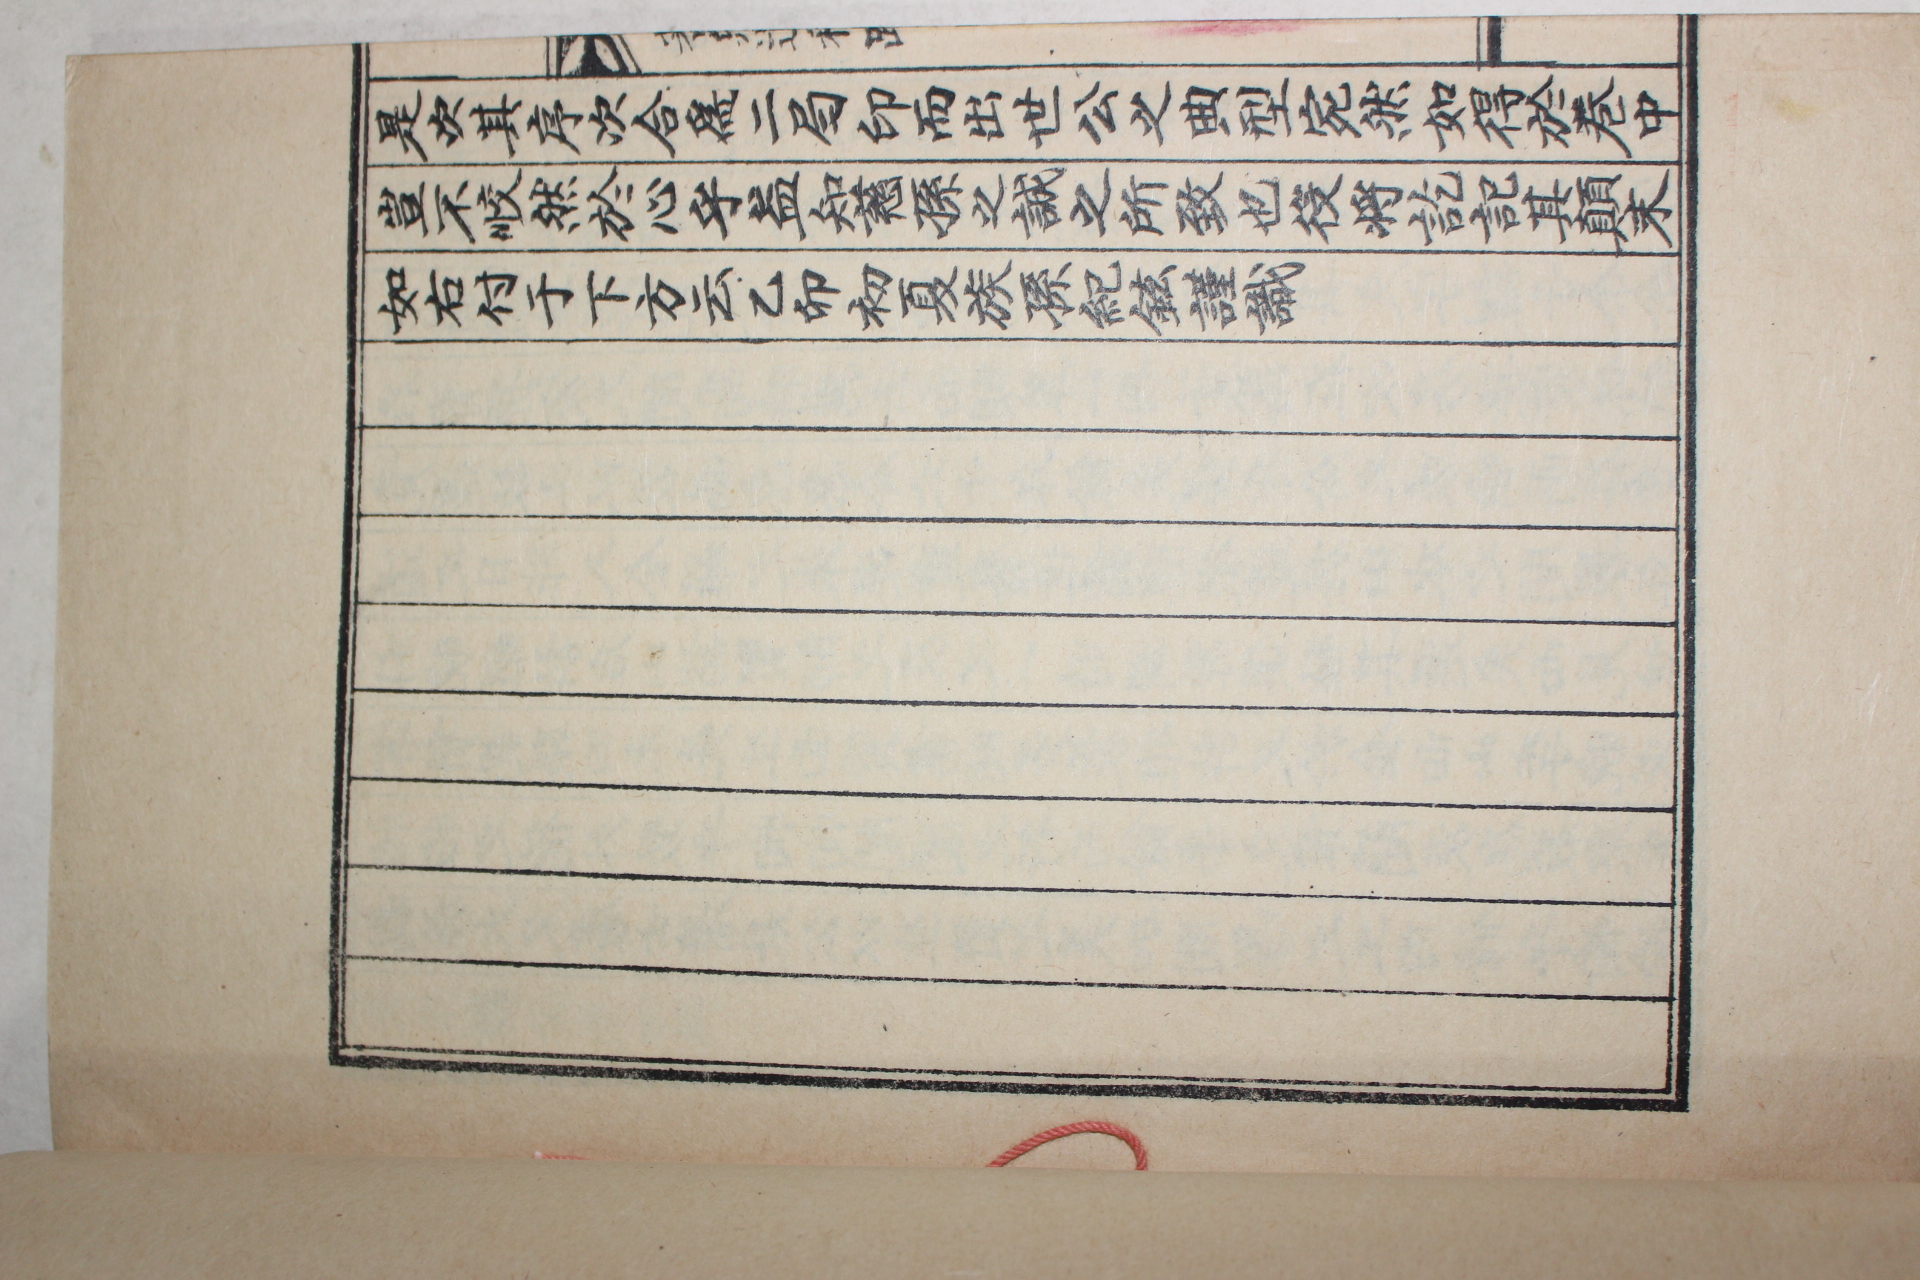 是次其序次合爲二局印而出世公之典型宛然如得於卷中
豈不悛然於心乎益知慈孫之誠之所致也役將訖記其顚末
如右付于下方云乙卯初夏族孫紀鉉謹識